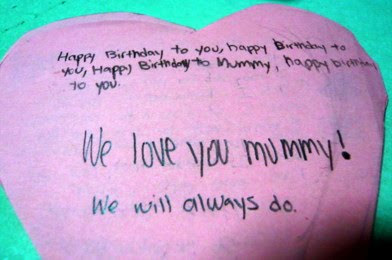 Happy Birthday to you, happy Birthday to
you, Happy Birthday to Mummy, happy birthday
to you.
We love you mummy!
We will always do.